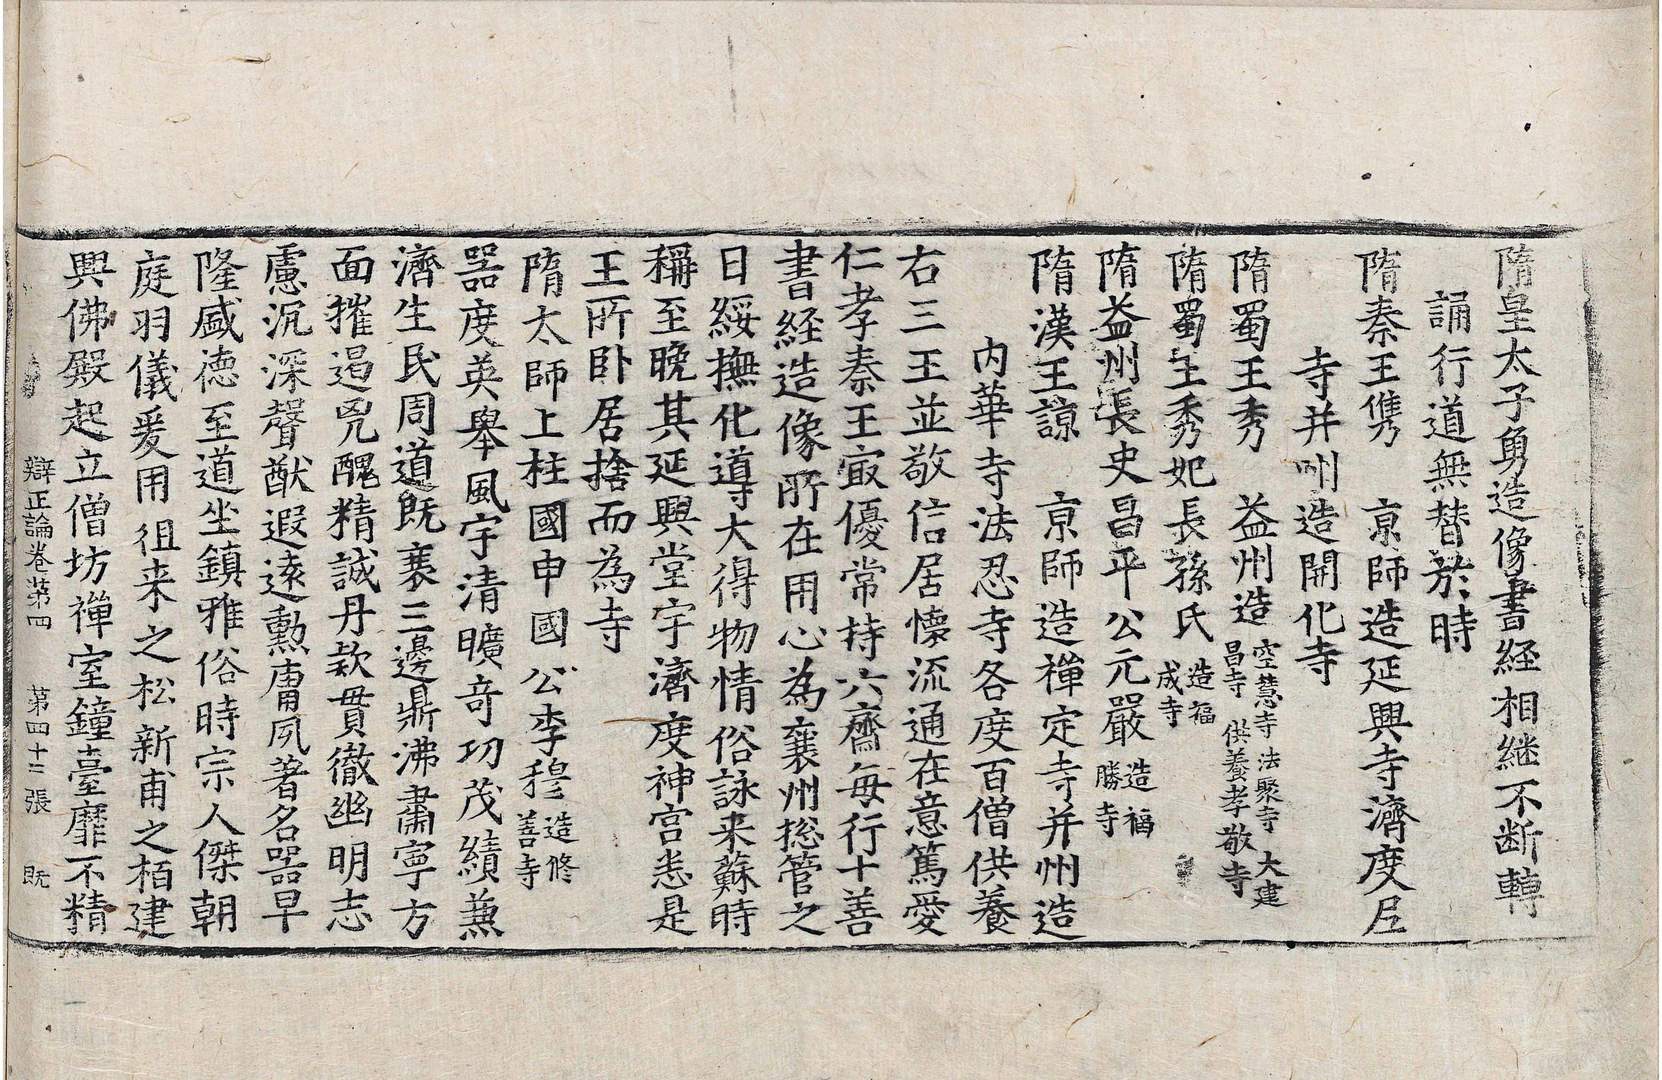 隋皇太子勇造像書経相継不断轉
誦行道無替於時
隋秦王儁　京師造延興寺濟度尼
寺并州造開化寺
隋蜀王秀　益州造空慧寺法聚寺大建
昌寺供養孝敬寺
隋蜀王秀妃長孫氏造福
成寺
隋益州長史昌平公元巖造福
勝寺
隋漢王諒　京師造禪定寺并州造
内華寺法忍寺各度百僧供養
右三王並敬信居懐流通在意篤愛
仁孝秦王㝡優常持六齋每行十善
書経造像所在用心為襄州捴管之
日綏撫化導大得物情俗詠来蘇時
稱至晚其延興堂宇濟度神宫悉是
王所卧居捨而為寺
隋太師上柱國申國公李穆造修
善寺
器度英舉風宇清曠竒功茂績兼
濟生民周道既衰三邊鼎沸肅寧方
面摧遏兇醜精誠丹款貫徹幽明志
慮沉深聲猷遐逺勲庸夙著名器早
隆盛德至道坐鎮雅俗時宗人傑朝
庭羽儀爰用徂来之松新甫之栢建
興佛殿起立僧坊禪室鐘臺靡不精
辯正論卷苐四　第四十二張　既